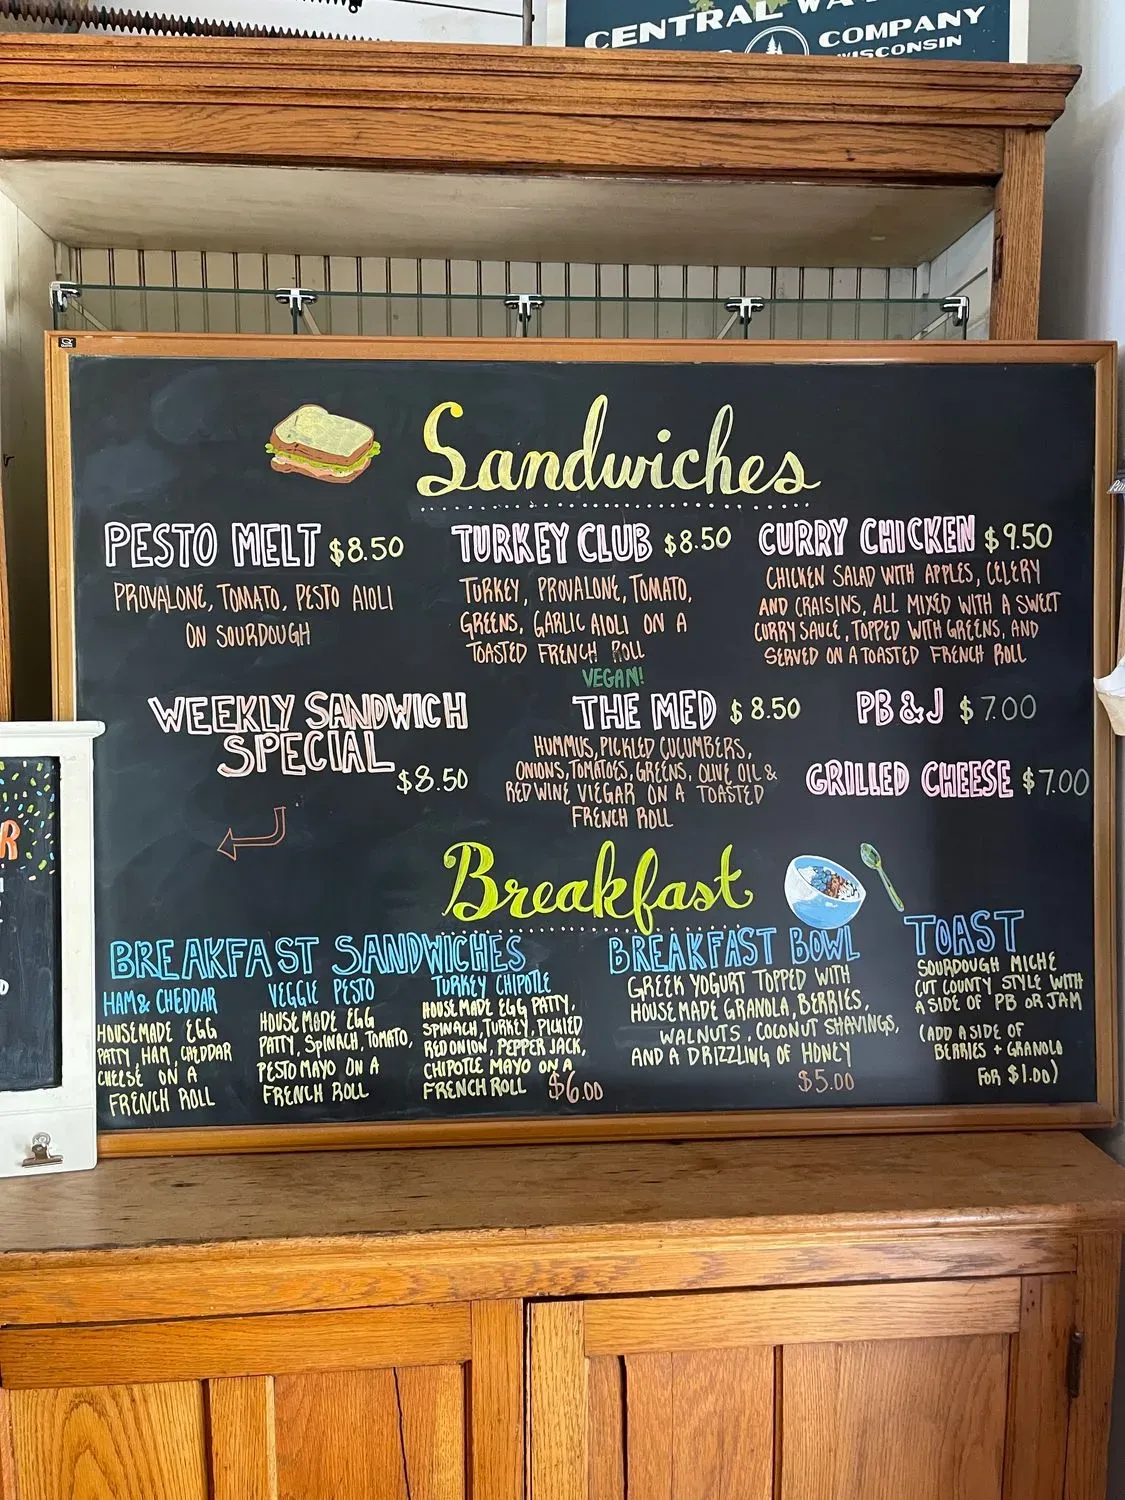 CENTRAL WA
COMPANY
WISCONSIN
Sandwiches
PESTO MELT $8.50
PROVALONE, TOMATO, PESTO AIOLI
ON SOURDOUGH
TURKEY CLUB $8.50
TURKEY, PROVALONE, TOMATO,
GREENS, GARLIC AIOLI ON A
TOASTED FRENCH ROLL
CURRY CHICKEN $9.50
CHICKEN SALAD WITH APPLES, CELERY
AND CRAISINS, ALL MIXED WITH A SWEET
CURRY SAUCE, TOPPED WITH GREENS, AND
SERVED ON A TOASTED FRENCH ROLL
WEEKLY SANDWICH
SPECIAL
$8.50
VEGAN!
THE MED $8.50
HUMMUS, PICKLED CUCUMBERS,
ONIONS, TOMATOES, GREENS, OLIVE OIL &
RED WINE VIEGAR ON A TOASTED
FRENCH ROLL
PB & J $7.00
GRILLED CHEESE $7.00
Breakfast
BREAKFAST SANDWICHES
HAM & CHEDDAR
HOUSEMADE EGG
PATTY, HAM, CHEDDAR
CHEESE ON A
FRENCH ROLL
VEGGIE PESTO
HOUSE MODE EGG
PATTY, SPINACH, TOMATO,
PESTO MAYO ON A
FRENCH ROLL
TURKEY CHIPOTLE
HOUSEMADE EGG PATTY,
SPINACH, TURKEY, PICKLED
RED ONION, PEPPER JACK,
CHIPOTLE MAYO ON A
FRENCH ROLL $6.00
BREAKFAST BOWL
GREEK YOGURT TOPPED WITH
HOUSEMADE GRANOLA, BERRIES,
WALNUTS, COCONUT SHAVINGS,
AND A DRIZZLING OF HONEY
$5.00
TOAST
SOURDOUGH MICHE
CUT COUNTY STYLE WITH
A SIDE OF PB OR JAM
(ADD A SIDE OF
BERRIES + GRANOLA
FOR $1.00)